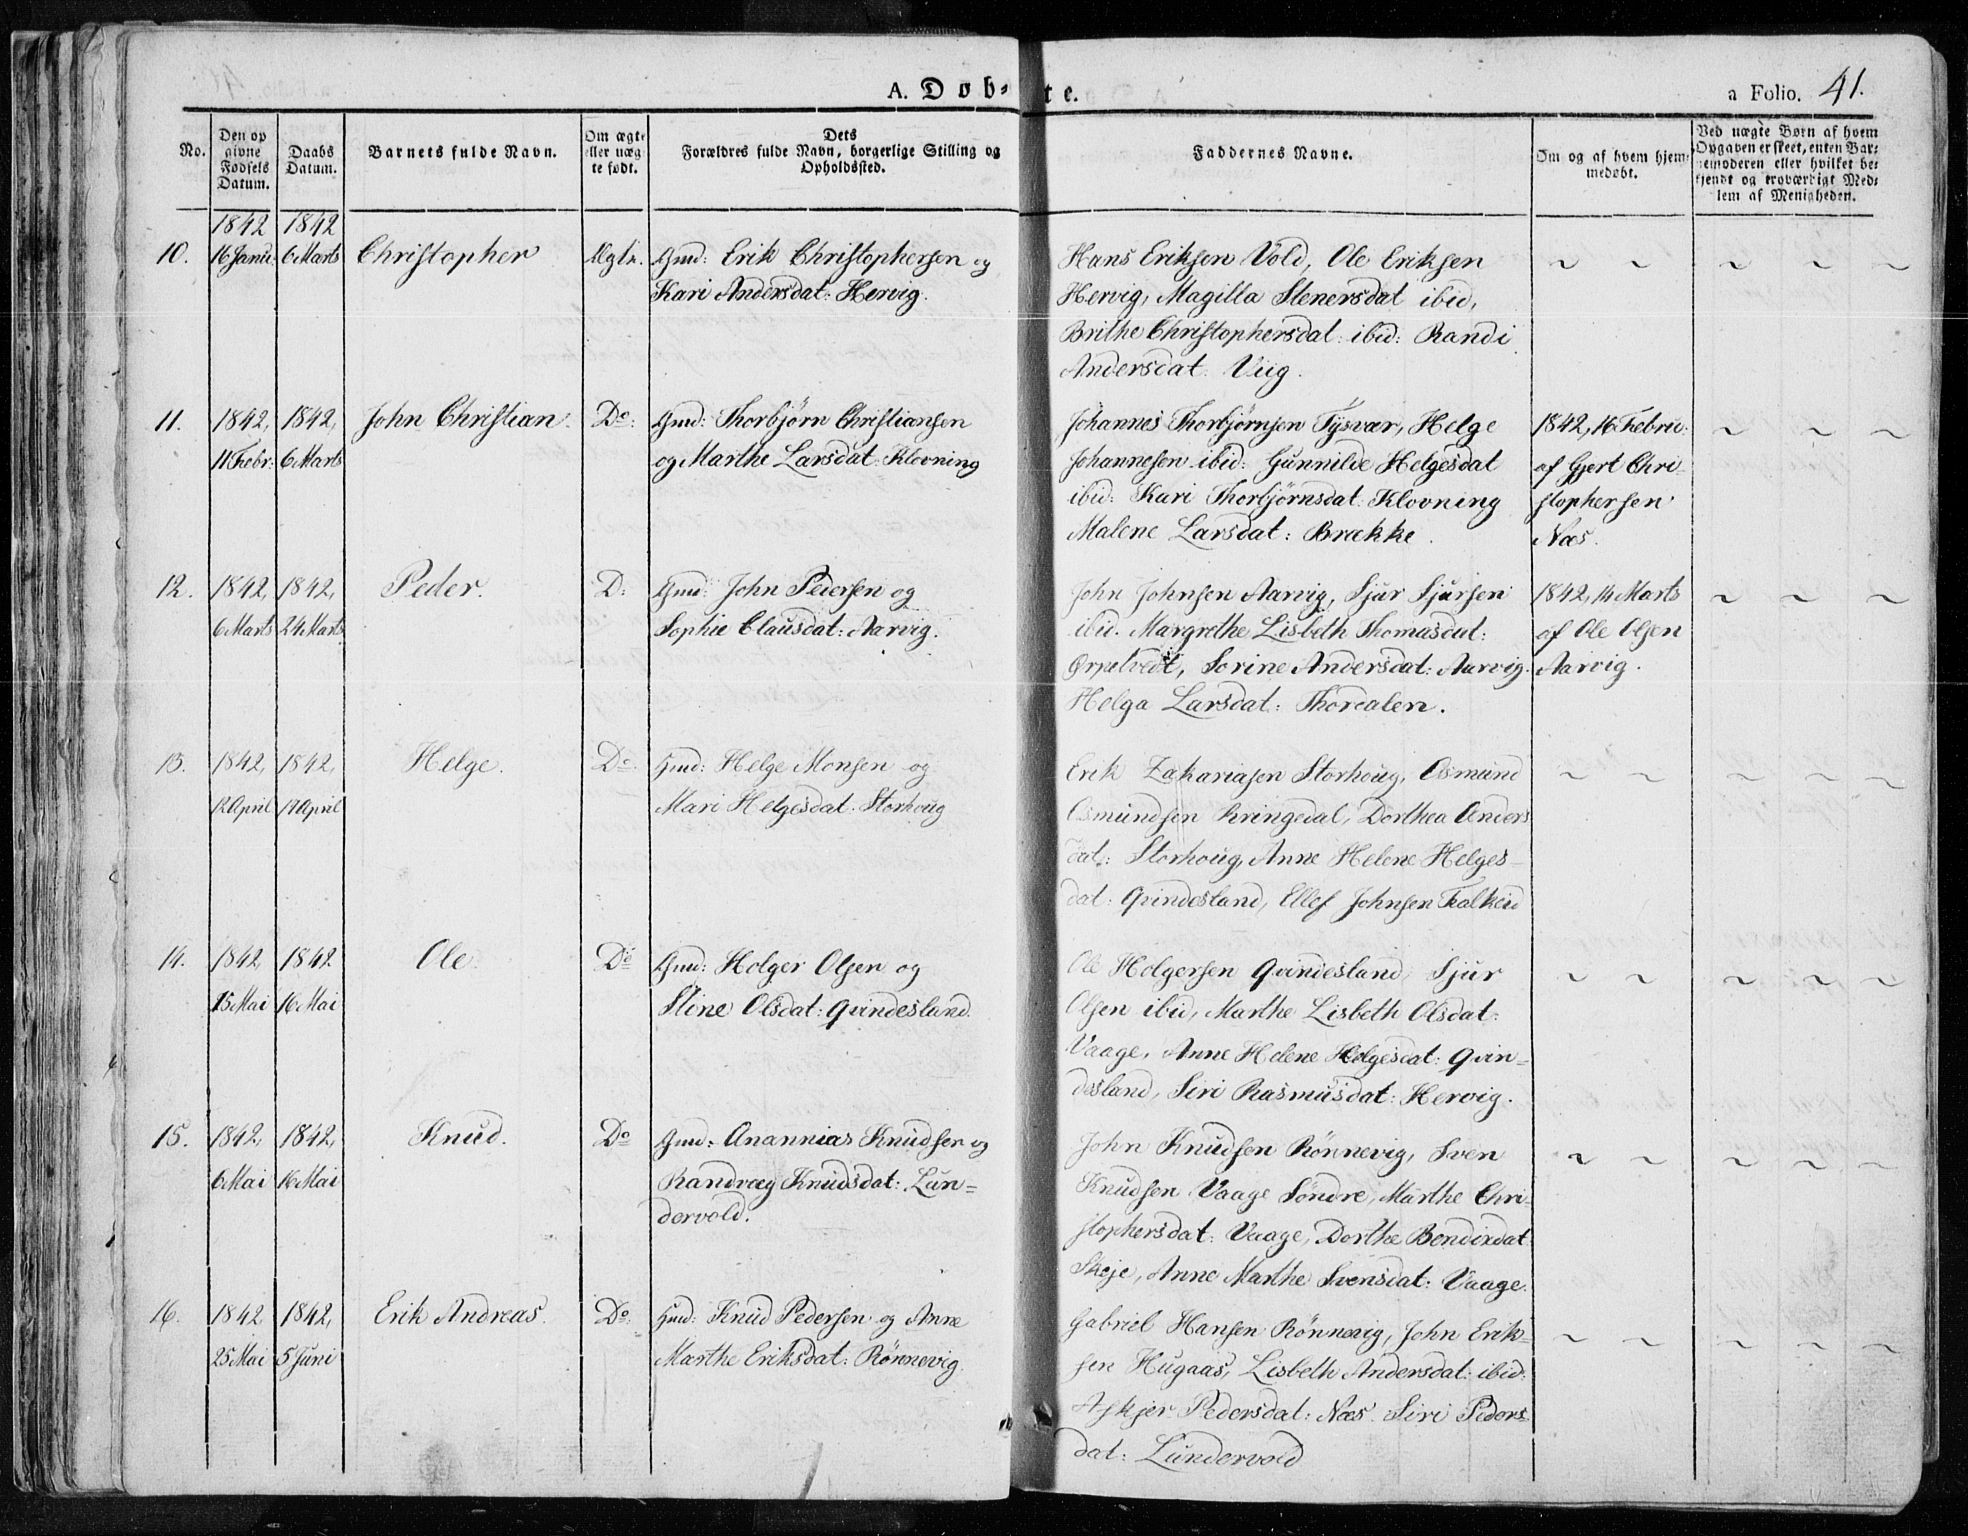 A. Døb-te.
a Folio. 41.
No.
Den op
givne
Fødsels
Datum.
Daabs
Datum.
Barnets fulde Navn.
Om ægte
eller uæg
te født.
Dets
Forældres fulde Navn, borgerlige Stilling og
Opholdssted.
Faddernes Navne.
Om og af hvem hjem-
medøbt.
Ved uægte Børn af hvem
Opgaven er skeet, enten Bar-
nemoderen eller hvilket be-
kjendt og troværdigt Med-
lem af Menigheden.
1842 1842
10. 16 Janu: 6 Marts Christopher Ægte. Gmd: Erik Christophersen og
Kari Andersdat: Hervig.
Hans Eriksen Vold, Ole Eriksen
Hervig, Magilla Stenersdat ibid,
Brithe Christophersdat: ibid: Randi
Andersdat. Viig.
11. 1842, 1842, John Christian. Do: Gmd: Thorbjørn Christiansen
11 Febr: 6 Marts og Marthe Larsdat: Klovning
Johannes Thorbjørnsen Tysvær, Helge
Johannesen ibid: Gunnilde Helgesdat
ibid: Kari Thorbjørnsdat Klovning
Malene Larsdat: Brække.
1842, 16 Febru:
af Gjert Chri-
stophersen
Næs.
12. 1842, 1842, Peder. D: Gmd: John Pedersen og
6 Marts 24 Marts Sophie Clausdat: Aarvig.
John Johnsen Aarvig, Sjur Sjursen
ibid. Margrethe Lisbeth Thomasdat:
Ørpetvedt, Sorine Andersdat: Aarvig.
Helga Larsdat: Thordalen.
1842, 14 Marts
af Ole Olsen
Aarvig.
13. 1842, 1842, Helge. Do. Gmd: Helge Monsen og
12 April 17 April Mari Helgesdat. Storhoug
Erik Zakariasen Storhoug, Osmund
Osmundsen Kringedal, Dorthea Anders
dat: Storhoug, Anne Helene Helges-
dat: Qvindesland, Ellef Johnsen Falkeid
14. 1842, 1842 Ole. Do Gmd: Holger Olsen og
15 Mai 16 Mai Stine Olsdat: Qvindesland.
Ole Holgersen Qvindesland, Sjur
Olsen ibid, Marthe Lisbeth Olsdat:
Vaage, Anne Helene Helgesdat: Qvin-
desland, Siri Rasmusdat: Hervig.
15. 1842, 1842, Knud. Do Gmd: Anannias Knudsen og
6 Mai 16 Mai Randvæg Knudsdat: Lun-
dervold.
John Knudsen Rönnevig, Sven
Knudsen Vaage Söndre, Marthe Chri-
stophersdat: Vaage, Dorthe Bendixdat
Skeje, Anne Marthe Svensdat: Vaage.
16. 1842 1842, Erik Andreas. Do: Gmd: Knud Pedersen og Anne
25 Mai 5 Juni Marthe Eriksdat: Rönnevig.
Gabriel Hansen Rönnevig, John Erik-
sen Hugaas, Lisbeth Andersdat: ibid:
Askjer Pedersdat: Næs. Siri Peders-
dat: Lundervold